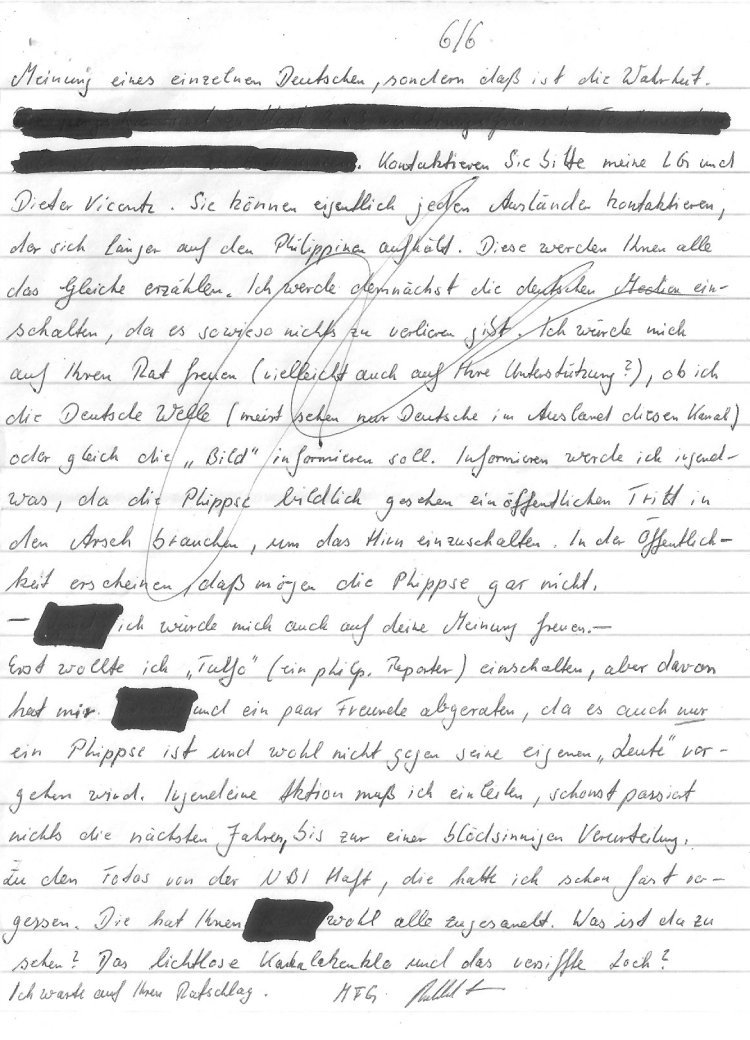 6/6
Meinung eines einzelnen Deutschen, sondern daß ist die Wahrheit.
. Kontaktieren Sie bitte meine LG und
Dieter Vicentz. Sie können eigentlich jeden Ausländer kontaktieren,
der sich länger auf den Philippinen aufhält. Diese werden Ihnen alle
das Gleiche erzählen. Ich werde demnächst die deutschen Medien ein-
schalten, da es sowieso nichts zu verlieren gibt. Ich würde mich
auf Ihren Rat freuen (vielleicht auch auf Ihre Unterstützung?), ob ich
die Deutsche Welle (meist sehen nur Deutsche im Ausland diesen Kanal)
oder gleich die „Bild" informieren soll. Informieren werde ich irgend-
was, da die Phippse bildlich gesehen ein öffentlichen Tritt in
den Arsch brauchen, um das Hirn einzuschalten. In der Öffentlich-
keit erscheinen, daß mögen die Phippse gar nicht.
— ich würde mich auch auf deine Meinung freuen.—
Erst wollte ich „Tulfo" (ein philp. Reporter) einschalten, aber davon
hat mir und ein paar Freunde abgeraten, da es auch nur
ein Phippse ist und wohl nicht gegen seine eigenen „Leute" vor-
gehen wird. Irgendeine Aktion muß ich einleiten, schonst passiert
nichts die nächsten Jahren, bis zur einer blödsinnigen Verurteilung.
Zu den Fotos von der NBI Haft, die hatte ich schon fast ver-
gessen. Die hat Ihnen wohl alle zugesandt. Was ist da zu
sehen? Das lichtlose Kakalakenklo und das versiffte Loch?
Ich warte auf Ihren Ratschlag. MFG